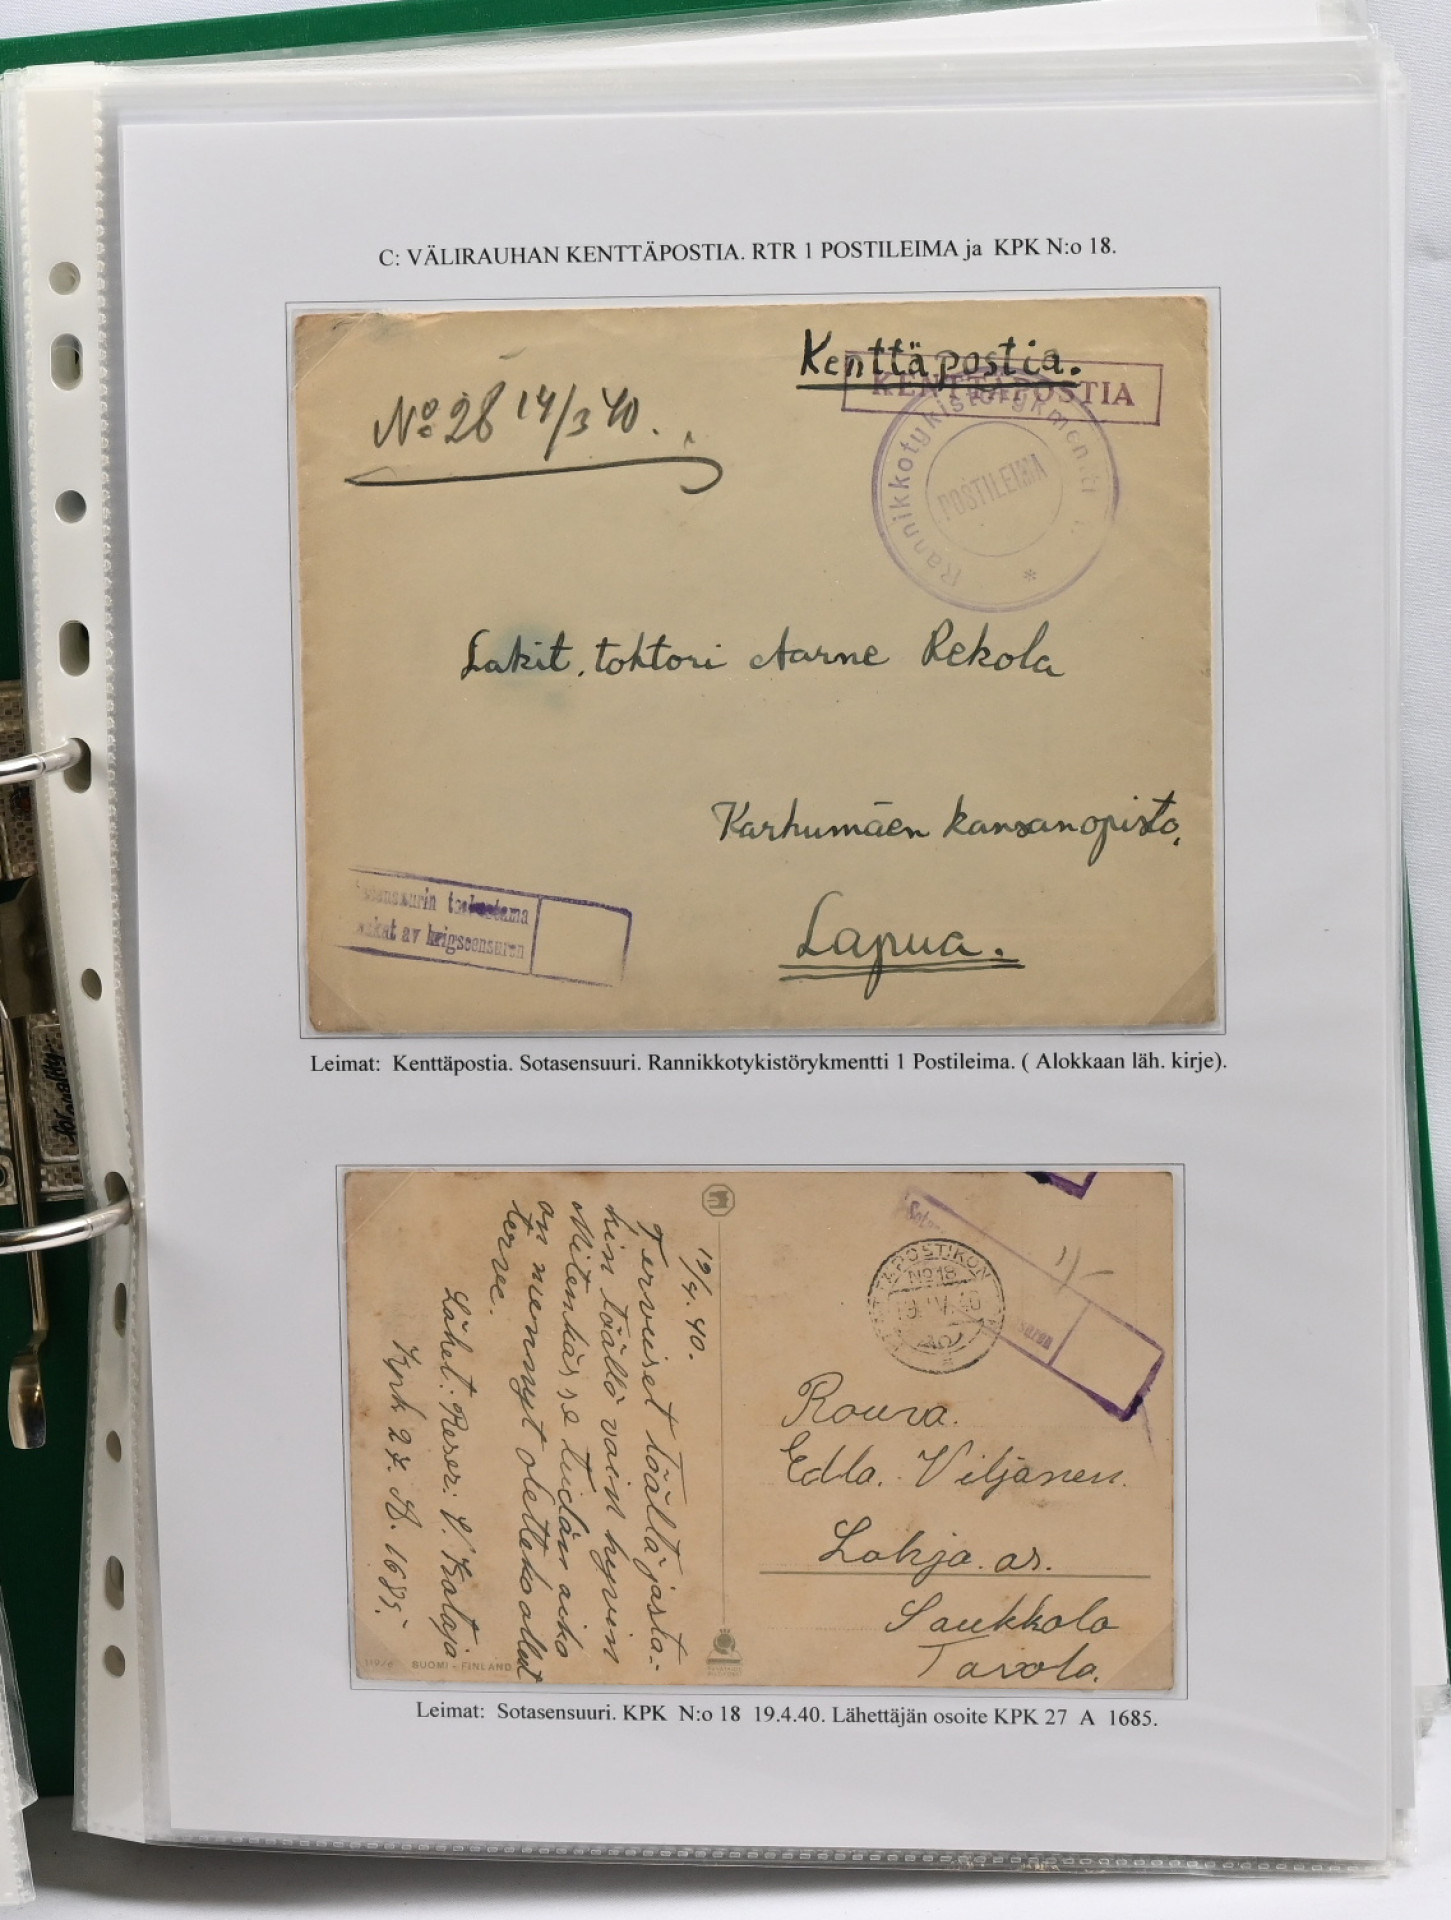 C: VÄLIRAUHAN KENTTÄPOSTIA. RTR 1 POSTILEIMA ja KPK N:o 18.
Kenttäpostia.
KENTTÄPOSTIA
No 28 14/3 40.
Rannikkotykistörykmentti 1.
POSTILEIMA
*
Lakit. tohtori Aarne Rekola
Karhumäen kansanopisto,
Lapua.
tensuurin tarkastama
av krigscensuren
Leimat: Kenttäpostia. Sotasensuuri. Rannikkotykistörykmentti 1 Postileima. ( Alokkaan läh. kirje).
19/4. 40.
Terveiset täältä jasta-
kin täällä vain hyvin
Mitenkäs se teidän aika
on mennyt oletteko olleet
terve.
Lähet: Reserv: V. Kataja
Kpk 27. A. 1685.
Sota
suren
POSTIKON
No 18
19.IV.40
*
Rouva.
Edla. Viljanen.
Lohja. as.
Saukkola
Tavola.
SUOMI - FINLAND
Leimat: Sotasensuuri. KPK N:o 18 19.4.40. Lähettäjän osoite KPK 27 A 1685.